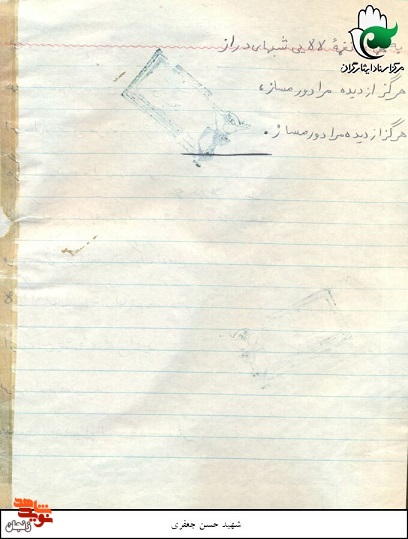 مرکز اسناد ایثارگران
لالایی شبهای دراز
هرگز از دیده مرا دور مساز،
هرگز از دیده مرا دور مساز.
نوید شاهد
زنجان
شهید حسن جعفری